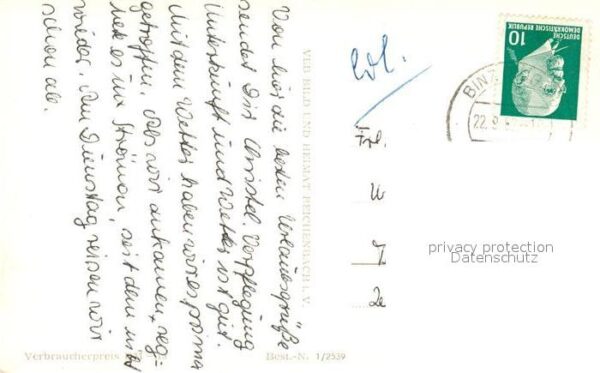 Von hier die besten Urlaubsgrüße
sendet Dir Christel. Verpflegung
Unterkunft und Wetter ist gut.
Mit dem Wetter haben wir es prima
getroffen. Als wir ankamen, reg-
nete es in Strömen, seit dem nicht
wieder. Am Dienstag reisen wir
schon ab.
VEB BILD UND HEIMAT REICHENBACH i. V.
DEUTSCHE
DEMOKRATISCHE REPUBLIK
10
BINZ
22.9
Frl.
privacy protection
Datenschutz
Verbraucherpreis
Best.-N. 1/2539